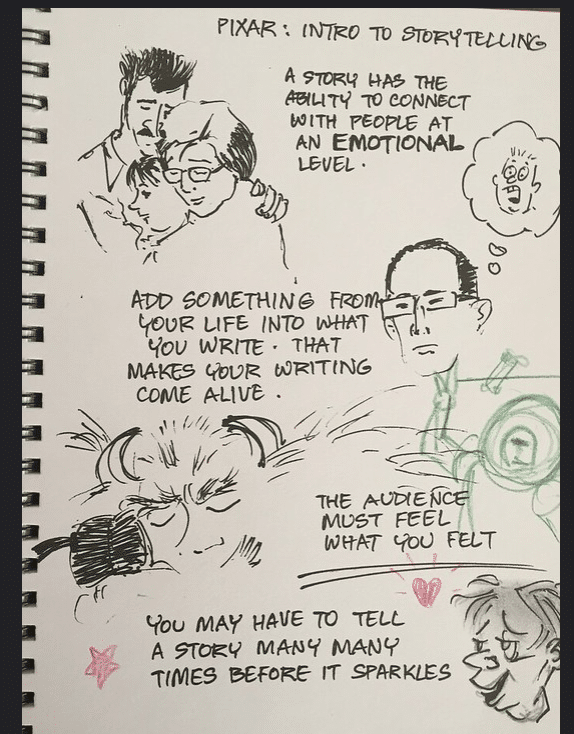 PIXAR: INTRO TO STORYTELLING
A STORY HAS THE
ABILITY TO CONNECT
WITH PEOPLE AT
AN EMOTIONAL
LEVEL.
ADD SOMETHING FROM
YOUR LIFE INTO WHAT
YOU WRITE. THAT
MAKES YOUR WRITING
COME ALIVE.
THE AUDIENCE
MUST FEEL
WHAT YOU FELT
YOU MAY HAVE TO TELL
A STORY MANY MANY
TIMES BEFORE IT SPARKLES